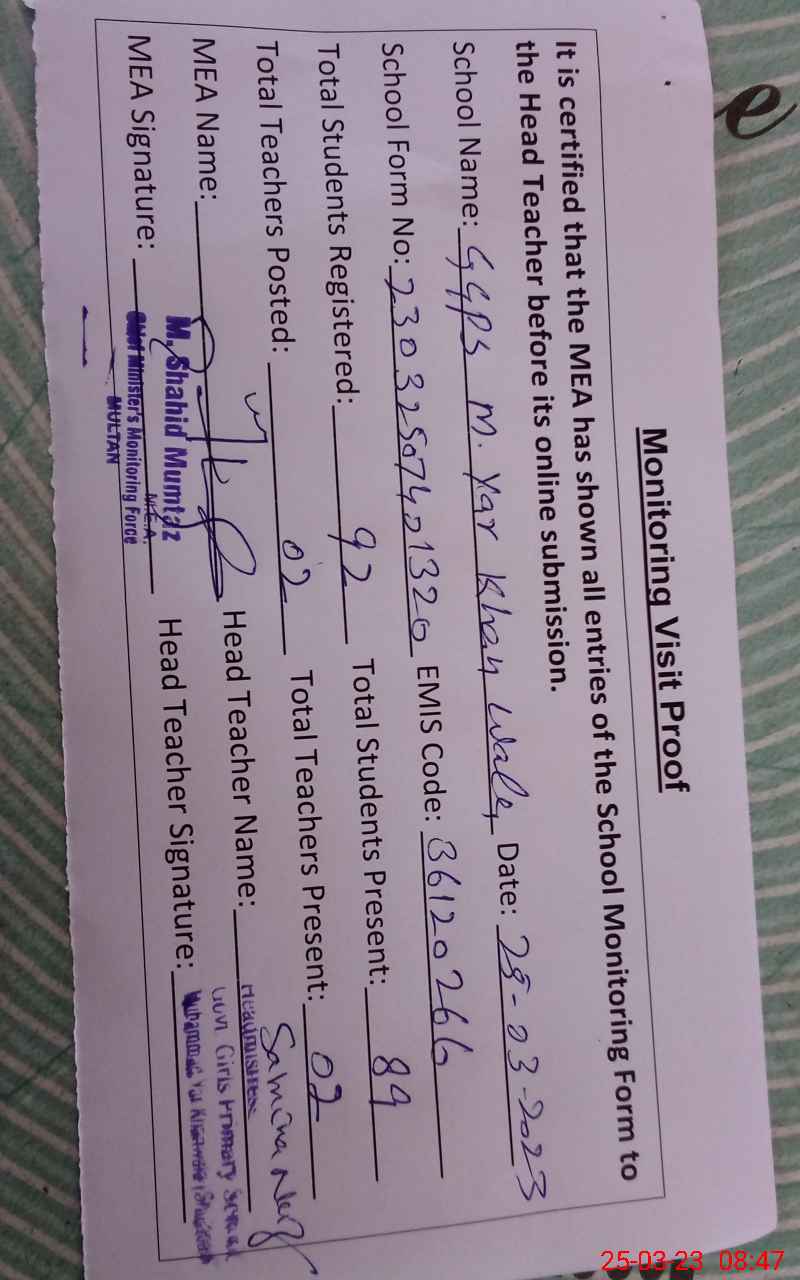 Monitoring Visit Proof
It is certified that the MEA has shown all entries of the School Monitoring Form to
the Head Teacher before its online submission.
School Name: GGPS M. Yar Khan Wala, Date: 25-03-2023
School Form No: 2303250740 1320 EMIS Code: 36120266
Total Students Registered: 92 Total Students Present: 89
Total Teachers Posted: 02 Total Teachers Present: 02
MEA Name: Head Teacher Name: Samina Naz
MEA Signature: Head Teacher Signature:
M. Shahid Mumtaz
M.E.A.
Chief Minister's Monitoring Force
MULTAN
Headmistress
Govt. Girls Primary School
Muhammad Yar
25-03-23 08:47